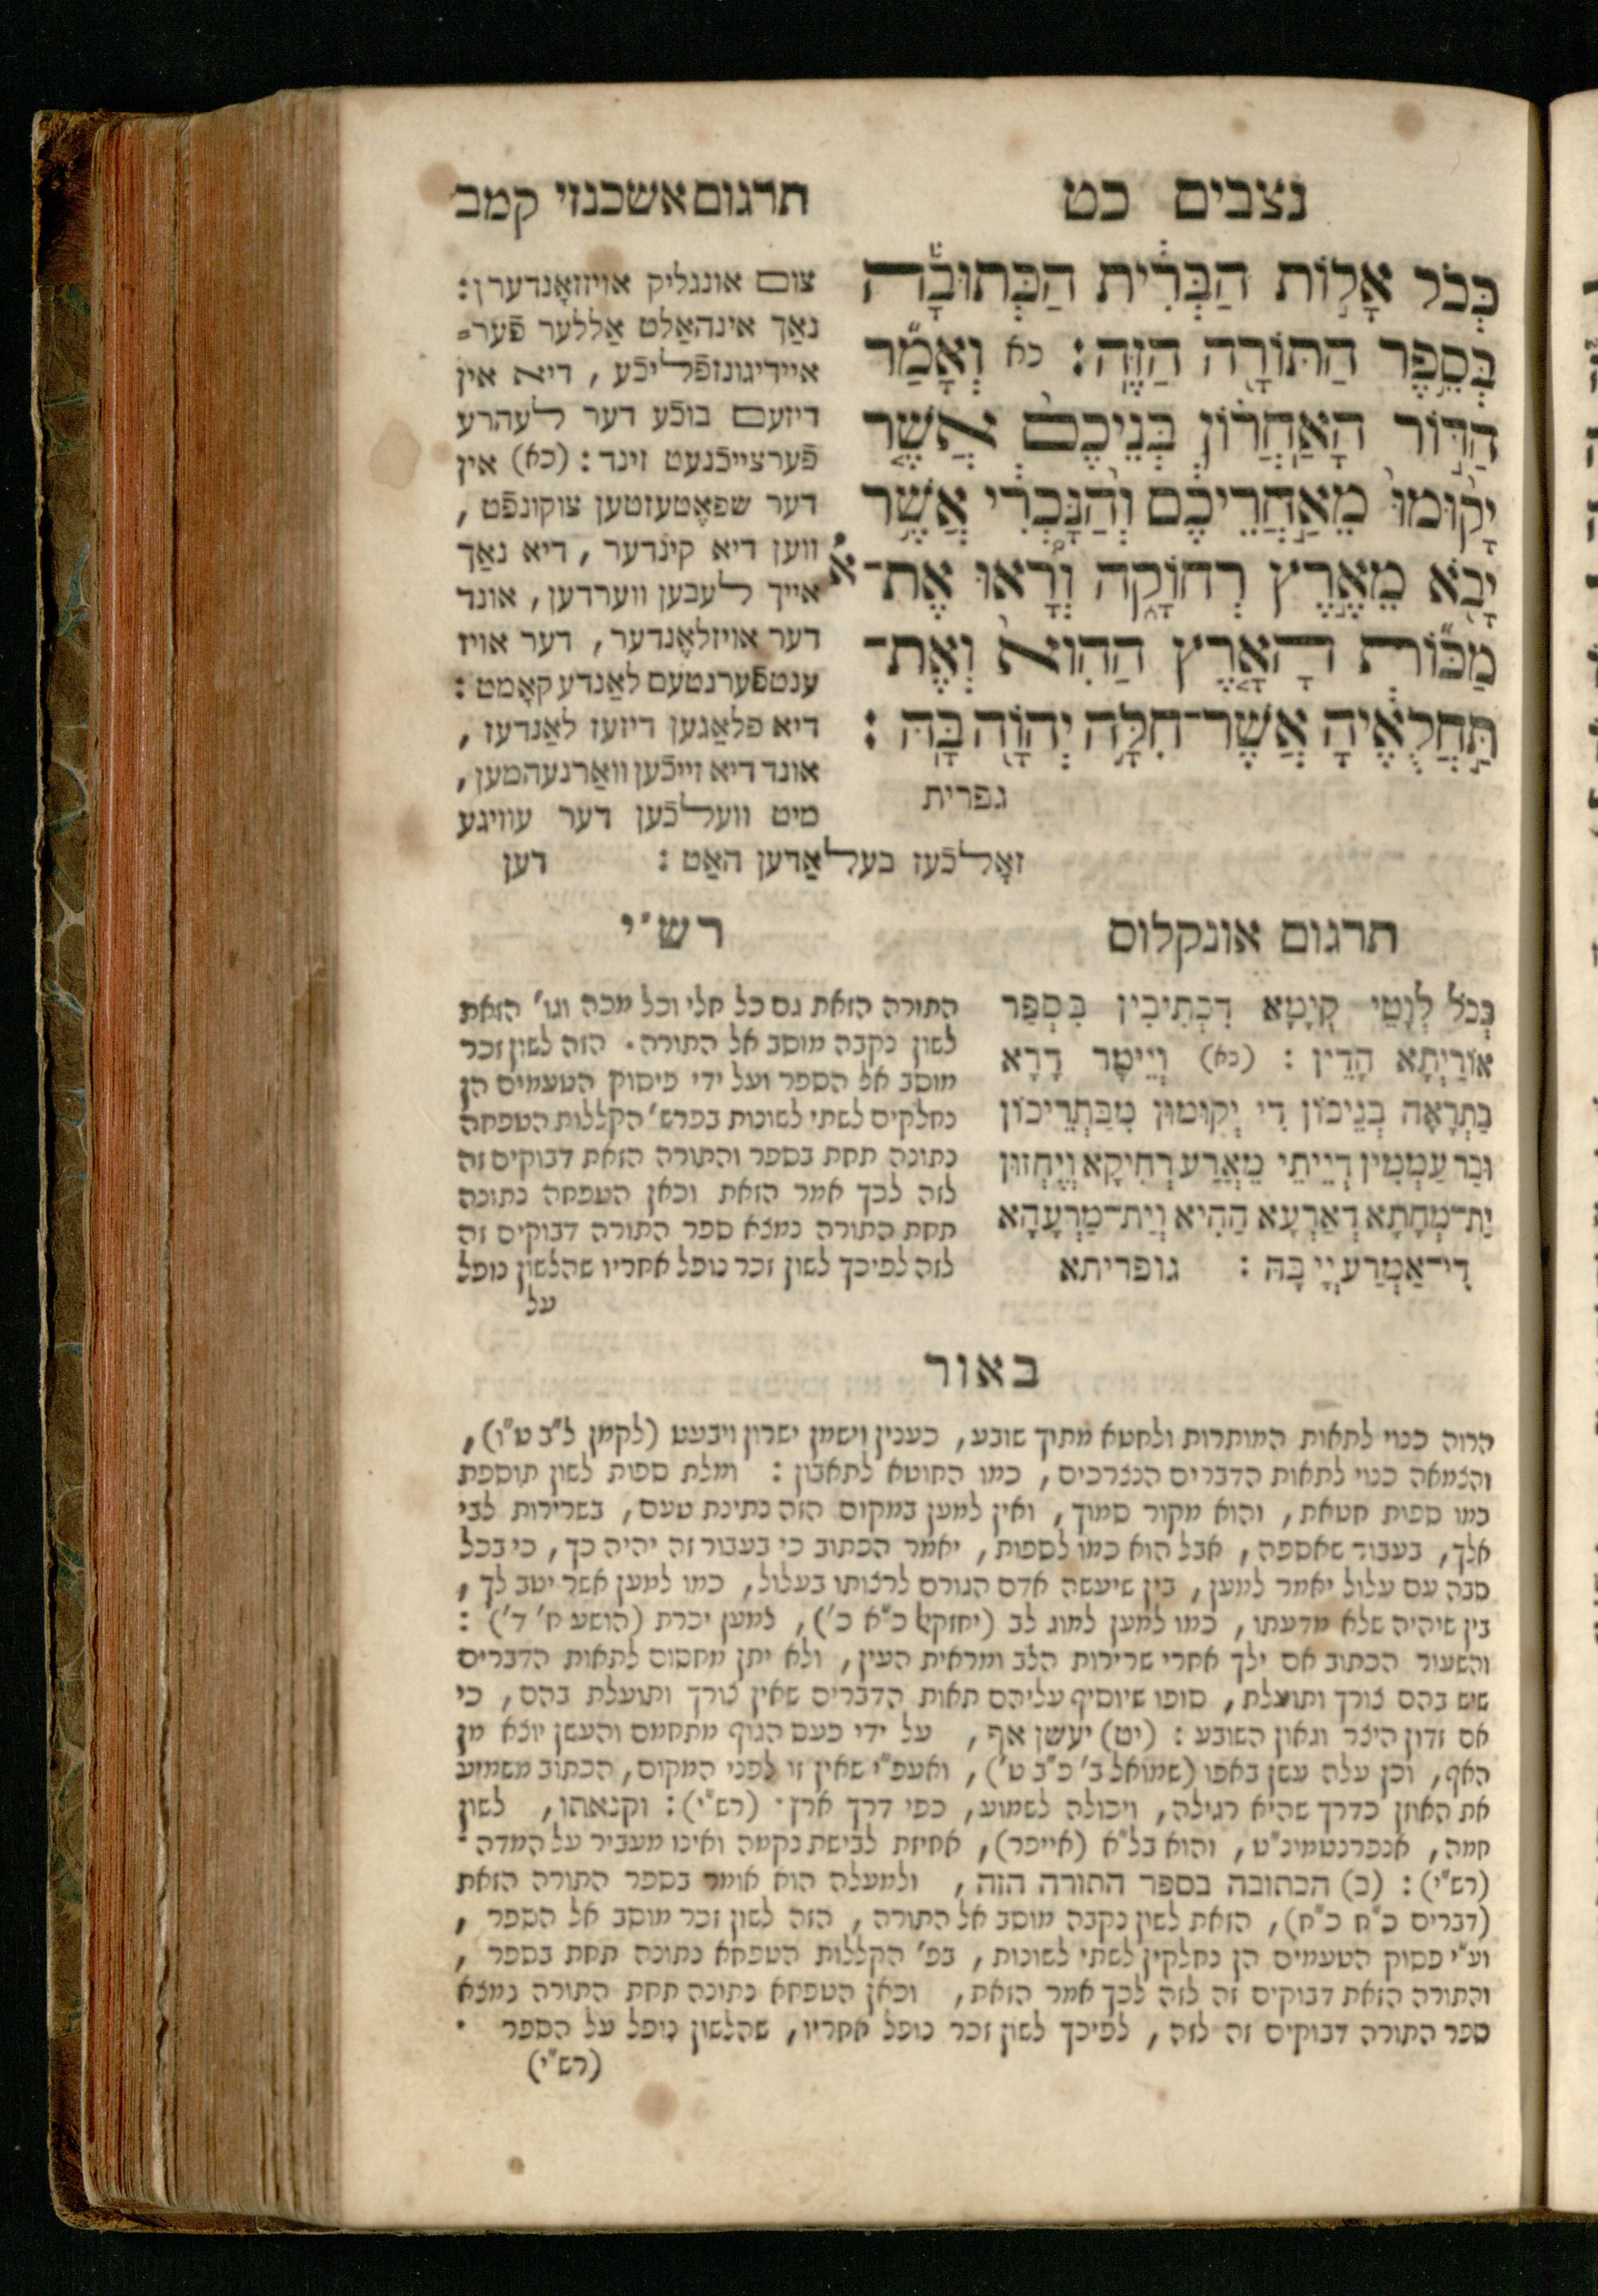 נצבים כט
תרגום אשכנזי קמב
כְּכֹל אָלוֹת הַבְּרִית הַכְּתוּבָה
בְּסֵפֶר הַתּוֹרָה הַזֶּה׃ כא וְאָמַר
הַדּוֹר הָאַחֲרוֹן בְּנֵיכֶם אֲשֶׁר
יָקוּמוּ מֵאַחֲרֵיכֶם וְהַנָּכְרִי אֲשֶׁר
יָבֹא מֵאֶרֶץ רְחוֹקָה וְרָאוּ אֶת־
מַכּוֹת הָאָרֶץ הַהִוא וְאֶת־
תַּחֲלֻאֶיהָ אֲשֶׁר־חִלָּה יְהוָה בָּהּ׃
גפרית
צום אונגליק אויזזאָנדערן :
נאַך אינהאַלט אַללער פֿער=
איידיגונזפֿליכֿע , דיא אין
דיזעם בוכֿע דער לעהרע
פֿערצייכֿנעט זינד : (כא) אין
דער שפאָטעזטען צוקונפֿט ,
ווען דיא קינדער , דיא נאַך
אייך לעבען ווערדען , אונד
דער אויזלאָנדער , דער אויז
ענטפֿערנטעם לאַנדע קאָמט :
דיא פלאַגען דיזעז לאַנדעז ,
אונד דיא זייכֿען וואַרנעהמען ,
מיט וועלכֿען דער עוויגע
זאָלכֿעז בעלאַדען האַט : דען
תרגום אונקלוס
כְּכֹל לְוָטֵי קְיָמָא דִּכְתִיבִין בִּסְפַר
אוֹרַיְתָא הָדֵין : (כא) וְיֵימַר דָּרָא
בַתְרָאָה בְּנֵיכוֹן דִּי יְקוּמוּן מִבַּתְרֵיכוֹן
וּבַר עַמְמִין דְּיֵיתֵי מֵאֲרַע רְחִיקָא וְיֶחְזוּן
יַת־מְחָתָא דְאַרְעָא הַהִיא וְיַת־מַרְעָהָא
דִּי־אַמְרַע יְיָ בָּהּ : גופריתא
רש״י
התורה הזאת גם כל חלי וכל מכה וגו' הזאת
לשון נקבה מוסב אל התורה . הזה לשון זכר
מוסב אל הספר ועל ידי פיסוק הטעמים הן
נחלקים לשתי לשונות בפרש' הקללות הטפחה
נתונה תחת בספר והתורה הזאת דבוקים זה
לזה לכך אמר הזאת וכאן הטפחה נתונה
תחת התורה נמצא ספר התורה דבוקים זה
לזה לפיכך לשון זכר נופל אחריו שהלשון נופל
על
באור
הרוה כנוי לתאות המותרות ולחטא מתוך שובע , כענין וישמן ישרון ויבעט (לקמן ל"ב ט"ו) ,
והצמאה כנוי לתאות הדברים הנצרכים , כמו החוטא לתאבון : ומלת ספות לשון תוספת
כמו ספות חטאת , והוא מקור סמוך , ואין למען במקום הזה נתינת טעם , בשרירות לבי
אלך , בעבור שאספה , אבל הוא כמו לספות , יאמר הכתוב כי בעבור זה יהיה כך , כי בכל
סבה עם עלול יאמר למען , בין שיעשה אדם הגורם לרצותו בעלול , כמו למען אשר יטב לך ,
בין שיהיה שלא מדעתו , כמו למען למוג לב (יחזקאל כ"א כ') , למען יכרת (הושע ח' ד') :
והשעור הכתוב אם ילך אחרי שרירות הלב ומראית העין , ולא יתן מחסום לתאות הדברים
שיש בהם צורך ותועלת , סופו שיוסיף עליהם תאות הדברים שאין צורך ותועלת בהם , כי
אם זדון היצר וגאון השובע : (יט) יעשן אף , על ידי כעס הגוף מתחמם והעשן יוצא מן
האף , וכן עלה עשן באפו (שמואל ב' כ"ב ט') , ואעפ"י שאין זו לפני המקום , הכתוב משמיע
את האוזן כדרך שהיא רגילה , ויכולה לשמוע , כפי דרך ארץ . (רש"י) : וקנאתו , לשון
חמה , אנפרנטמינ"ט , והוא בל"א (אייפר) , אחיזת לבישת נקמה ואינו מעביר על המדה .
(רש"י) : (כ) הכתובה בספר התורה הזה , ולמעלה הוא אומר בספר התורה הזאת
(דברים כ"ח כ"ח) , הזאת לשון נקבה מוסב אל התורה , הזה לשון זכר מוסב אל הספר ,
וע"י פסוק הטעמים הן נחלקין לשתי לשונות , בפ' הקללות הטפחא נתונה תחת בספר ,
והתורה הזאת דבוקים זה לזה לכך אמר הזאת , וכאן הטפחא נתונה תחת התורה נמצא
ספר התורה דבוקים זה לזה , לפיכך לשון זכר נופל אחריו , שהלשון נופל על הספר .
(רש"י)